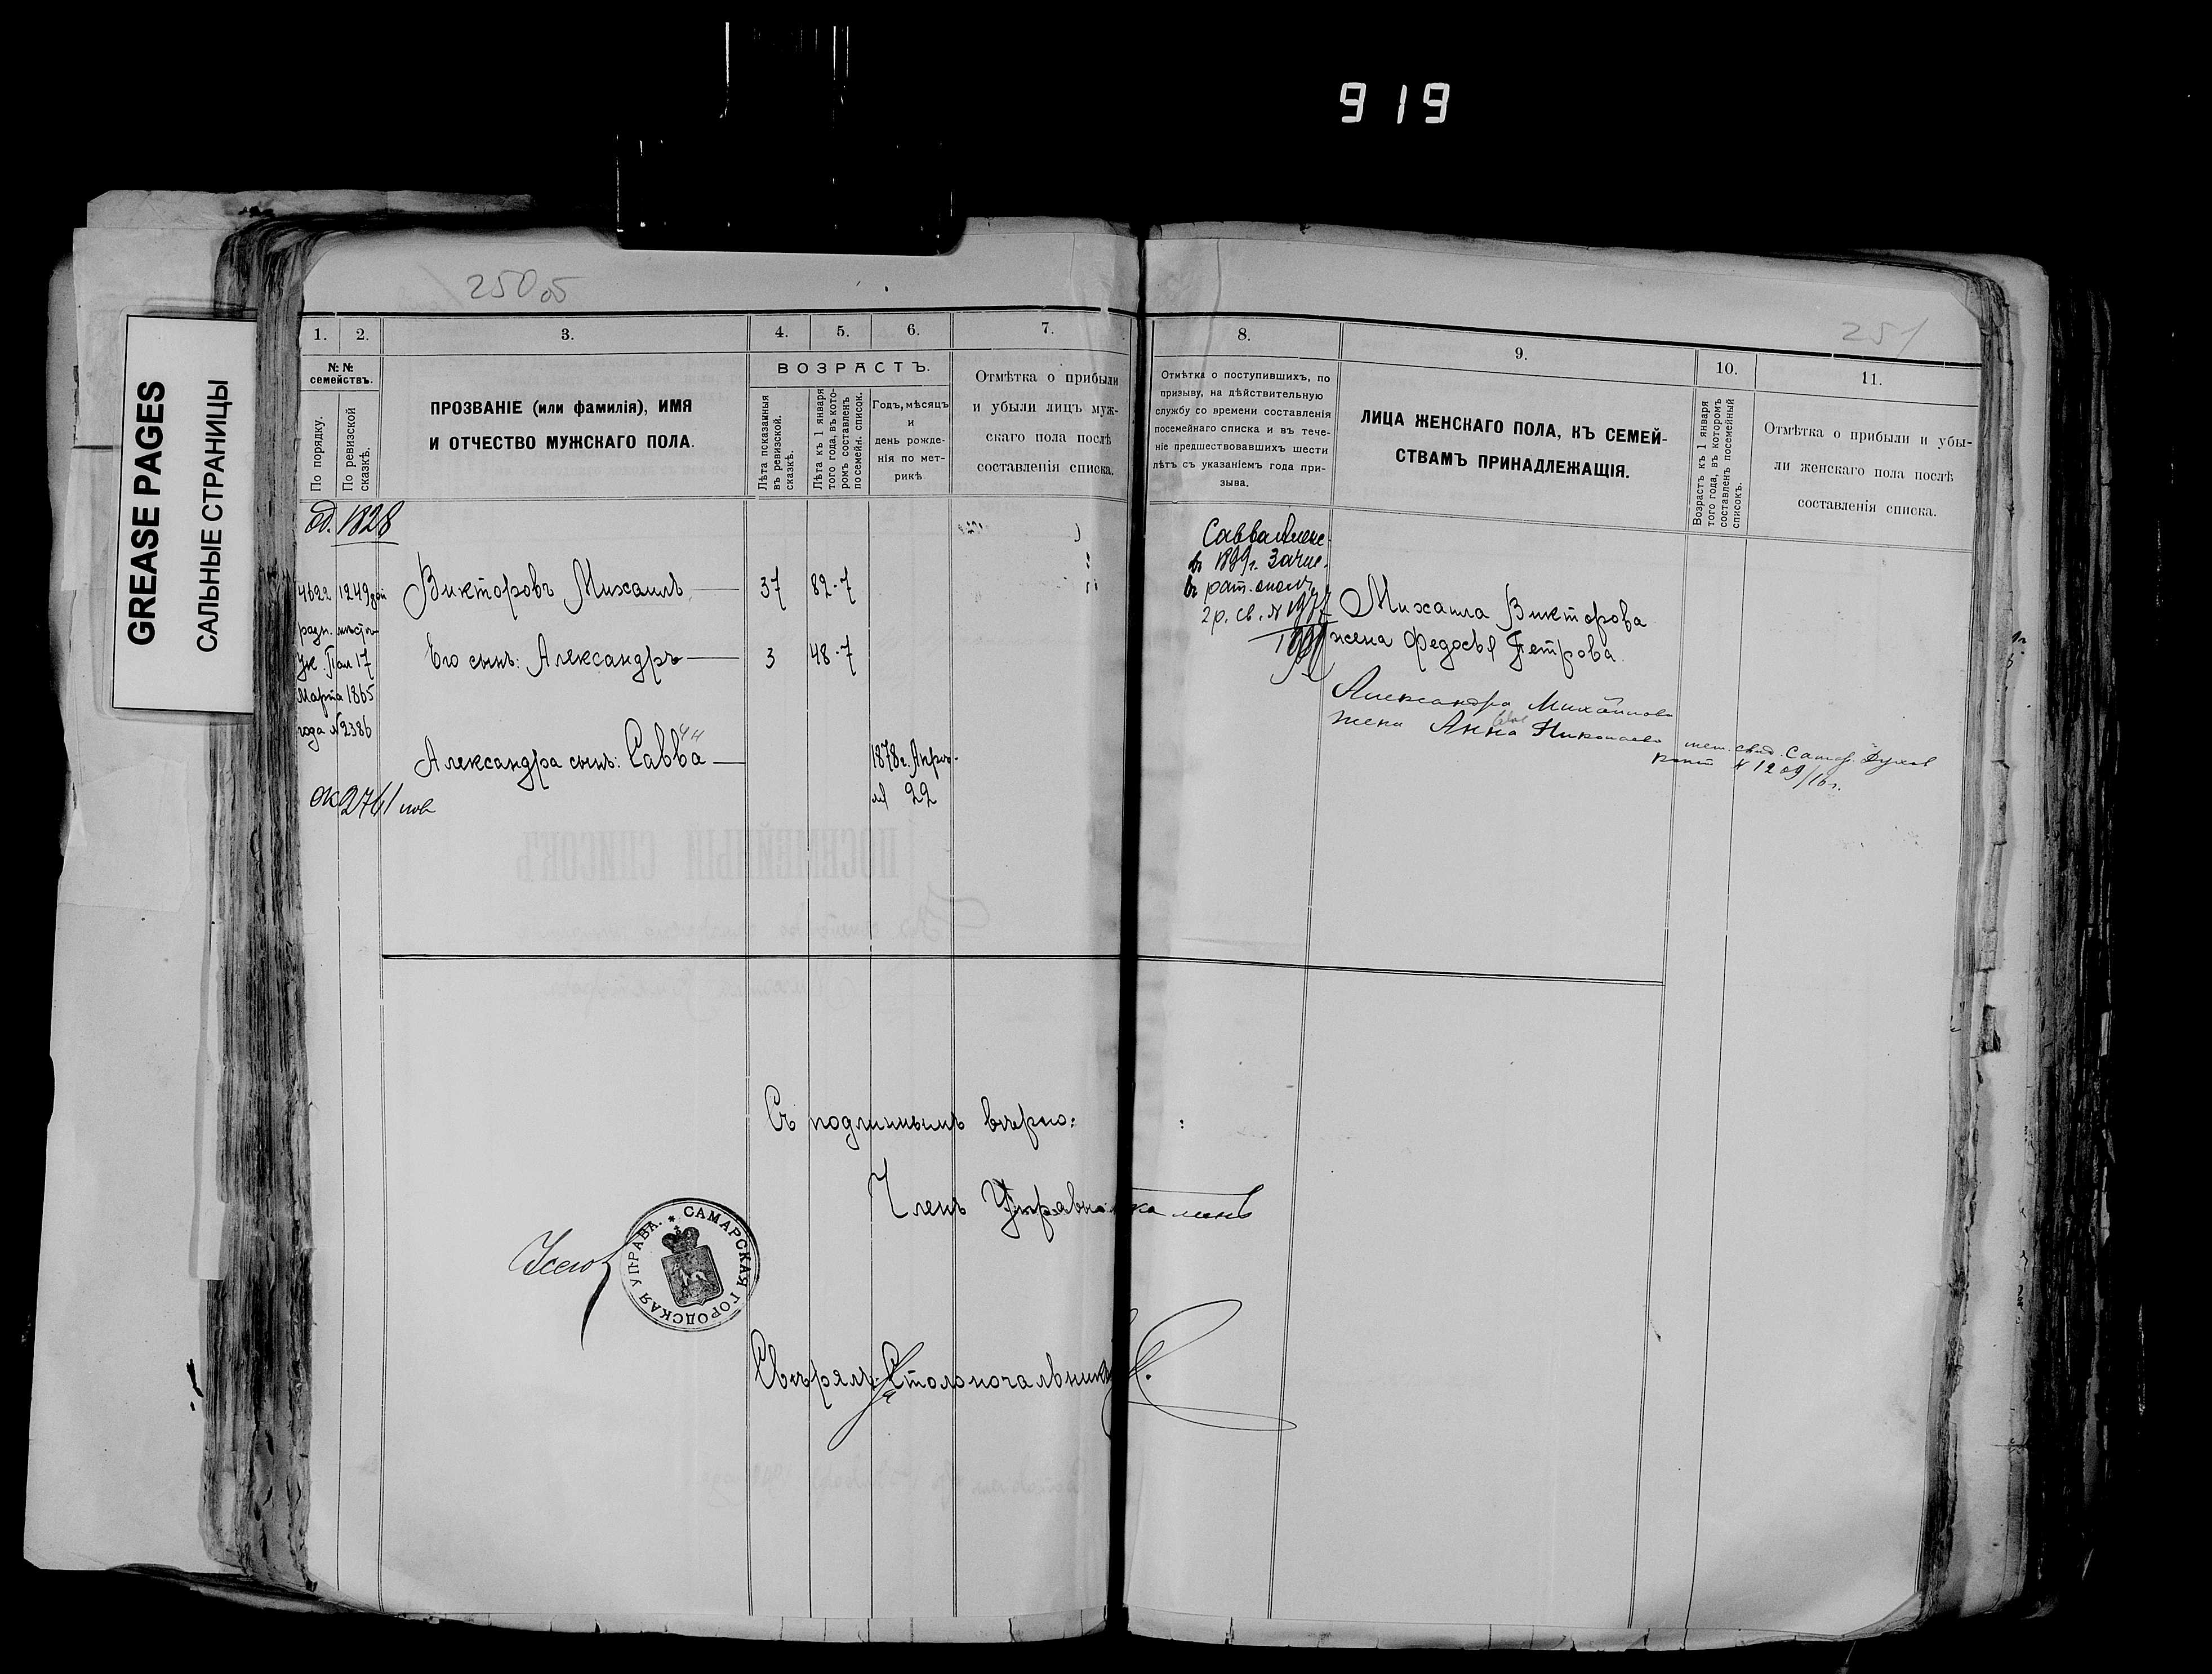 919
250 об
251
GREASE PAGES
САЛЬНЫЕ СТРАНИЦЫ
1.
2.
3.
4.
5.
6.
7.
8.
9.
10.
11.
№ №
семействъ.
По порядку.
По ревизской
сказкѣ.
ПРОЗВАНІЕ (или фамилія), ИМЯ
И ОТЧЕСТВО МУЖСКАГО ПОЛА.
ВОЗРАСТЪ.
Лѣта показанныя
въ ревизской.
сказкѣ.
Лѣта къ 1 января
того года, въ кото-
ромъ составленъ
посемейн. список.
Годъ, мѣсяцъ
и
день рожде-
нія по мет-
рикѣ
Отмѣтка о прибыли
и убыли лицъ муж-
скаго пола послѣ
составленія списка.
Отмѣтка о поступившихъ, по
призыву, на дѣйствительную
службу со времени составленія
посемейнаго списка и въ тече-
ніе предшествовавшихъ шести
лѣтъ съ указаніемъ года при-
зыва.
ЛИЦА ЖЕНСКАГО ПОЛА, КЪ СЕМЕЙ-
СТВАМЪ ПРИНАДЛЕЖАЩІЯ.
Возрастъ къ 1 января
того года, въ которомъ
составленъ посемейный
списокъ.
Отмѣтка о прибыли и убы-
ли женскаго пола послѣ
составленія списка.
1828
4622 1249
Викторовъ Михаилъ 37 82-7
Его сынъ: Александръ 3 48-7
Ук. Пал 17
Марта 1865
года №2386
Александра сынъ: Савва 1878г. Апрѣ-
ля 22
2761
Савва Алекс.
въ 1899г. Зачис.
въ рат. опол.
2 р. св. № 1977
Михаила Викторова
жена Федосья Петрова
Александра Михайлова
жена Анна Николаева мет. свид. Самар. Духов
№ 1209/16 г.
Съ подлиннымъ вѣрно:
Членъ Управы
САМАРСКАЯ ГОРОДСКАЯ УПРАВА.
Свѣрялъ: Столоначальникъ